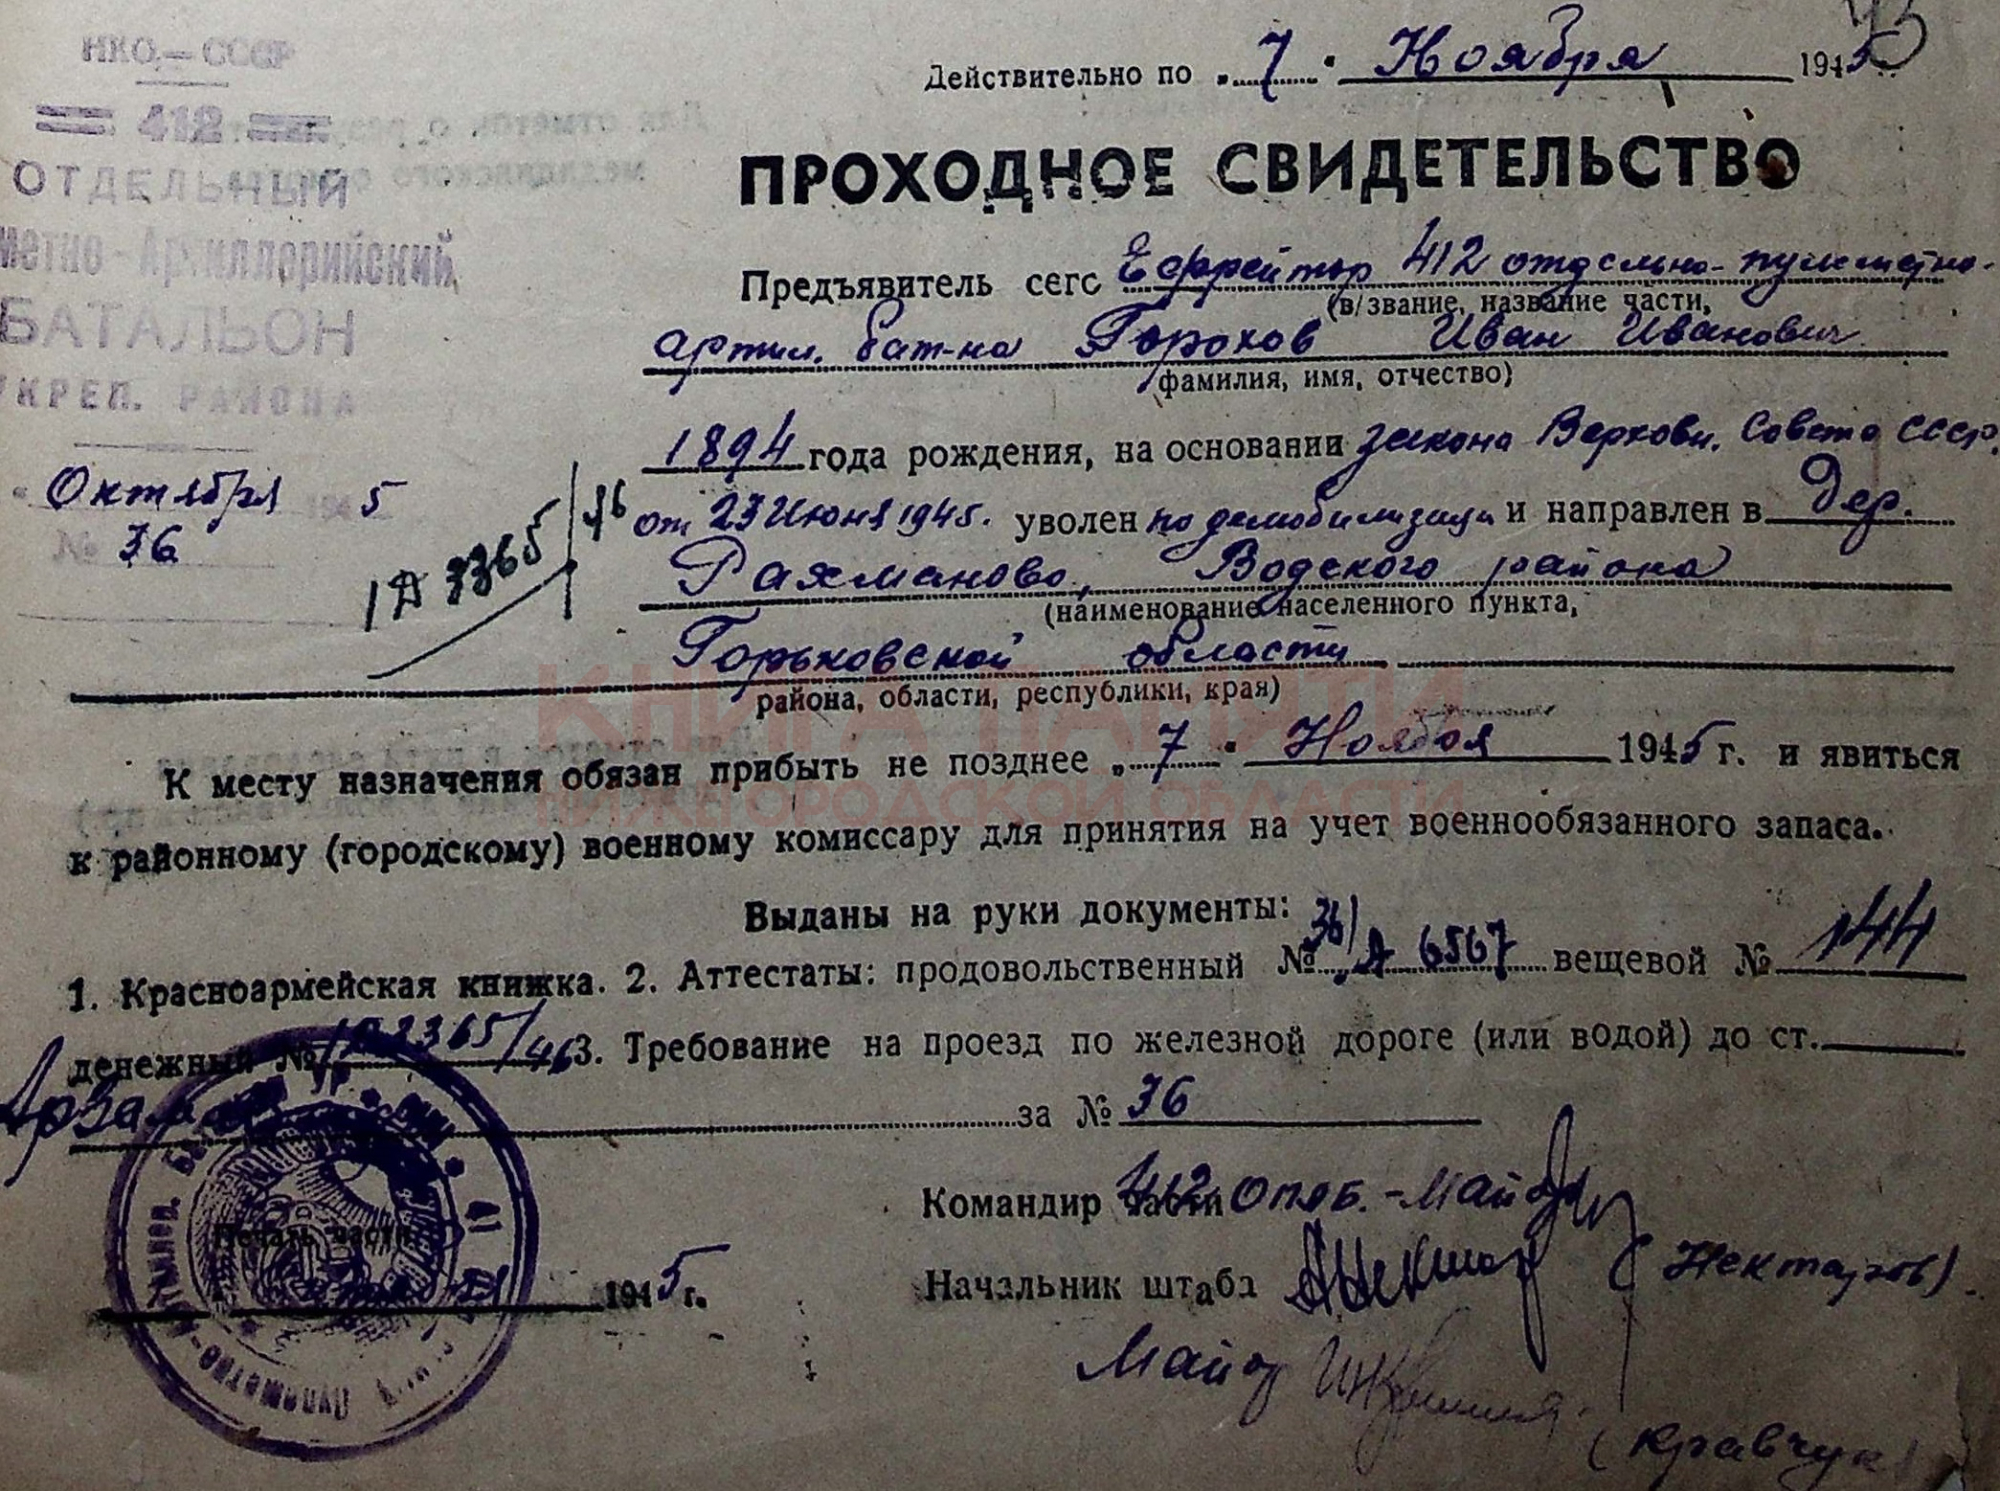 НКО — СССР
412
ОТДЕЛЬНЫЙ
метно-Артиллерийский
БАТАЛЬОН
УКРЕП. РАЙОНА
Октября 1945
№ 36
1А 3365/46
Действительно по „7“ Ноября 1945
ПРОХОДНОЕ СВИДЕТЕЛЬСТВО
Предъявитель сего Ефрейтор 412 отдельно-пулеметно-
(в/звание, название части,
артил. бат-на Горохов Иван Иванович
фамилия, имя, отчество)
1894 года рождения, на основании закона Верховн. Совета СССР
от 23 Июня 1945. уволен по демобилизации и направлен в Дер.
Рахманово, Водского района
(наименование населенного пункта,
Горьковской области
района, области, республики, края)
К месту назначения обязан прибыть не позднее „7“ Ноября 1945 г. и явиться
к районному (городскому) военному комиссару для принятия на учет военнообязанного запаса.
Выданы на руки документы:
1. Красноармейская книжка. 2. Аттестаты: продовольственный № А 6567 вещевой № 144
денежный № 3. Требование на проезд по железной дороге (или водой) до ст.
Арзамас за № 36
Командир части 412 ОПАБ.-Майор
Начальник штаба (Нектаров)
Майор
(Кравчук)
Печать части
1945 г.
КНИГА ПАМЯТИ
НИЖЕГОРОДСКОЙ ОБЛАСТИ